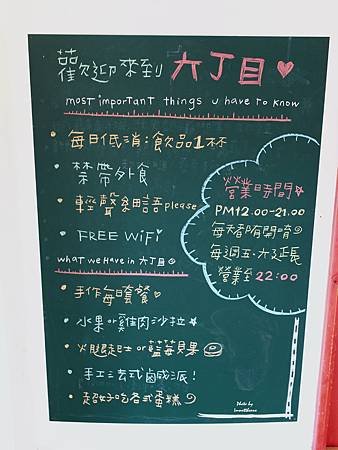 歡迎來到 六丁目
most important things u have to know
每日低消:飲品1杯
禁帶外食
輕聲細語please
FREE WiFi
what we have in 六丁目
手作每日套餐
水果or雞肉沙拉
火腿起士or藍莓貝果
手工法式鹹派!
超好吃各式蛋糕
營業時間
PM12.00-21.00
每天都有開唷
每週五.六延長
營業至22:00
Photo by